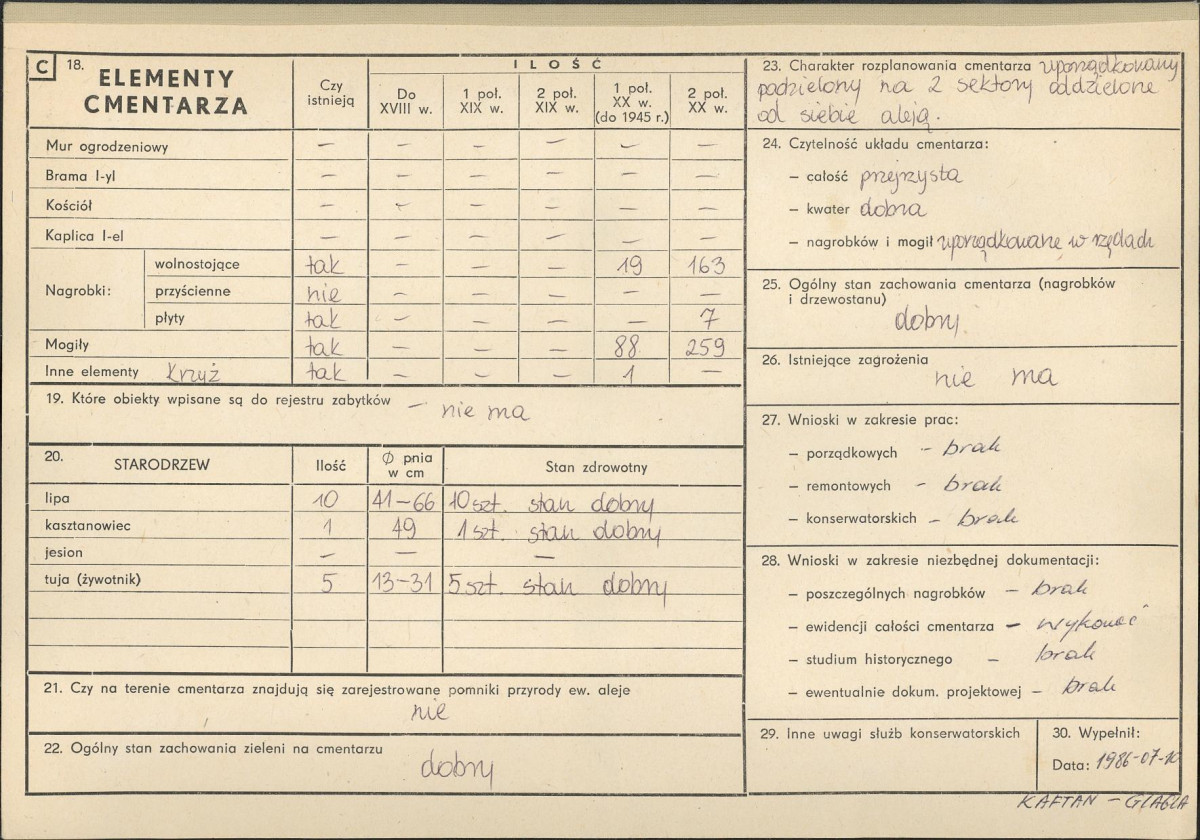 C 18. ELEMENTY CMENTARZA
Czy istnieją
ILOŚĆ
Do XVIII w.
1 poł. XIX w.
2 poł. XIX w.
1 poł. XX w. (do 1945 r.)
2 poł. XX w.
Mur ogrodzeniowy — — — — — —
Brama I-yl — — — — — —
Kościół — — — — — —
Kaplica I-el — — — — — —
Nagrobki:
wolnostojące tak — — — 19 163
przyścienne nie — — — — —
płyty tak — — — — 7
Mogiły tak — — — 88 259
Inne elementy Krzyż tak — — — 1 —
19. Które obiekty wpisane są do rejestru zabytków — nie ma
20. STARODRZEW Ilość Ø pnia w cm Stan zdrowotny
lipa 10 41–66 10 szt. stan dobry
kasztanowiec 1 49 1 szt. stan dobry
jesion — — —
tuja (żywotnik) 5 13–31 5 szt. stan dobry
21. Czy na terenie cmentarza znajdują się zarejestrowane pomniki przyrody ew. aleje
nie
22. Ogólny stan zachowania zieleni na cmentarzu
dobry
23. Charakter rozplanowania cmentarza uporządkowany
podzielony na 2 sektory oddzielone
od siebie aleją.
24. Czytelność układu cmentarza:
– całość przejrzysta
– kwater dobra
– nagrobków i mogił uporządkowane w rzędach
25. Ogólny stan zachowania cmentarza (nagrobków
i drzewostanu)
dobry
26. Istniejące zagrożenia
nie ma
27. Wnioski w zakresie prac:
– porządkowych – brak
– remontowych – brak
– konserwatorskich – brak
28. Wnioski w zakresie niezbędnej dokumentacji:
– poszczególnych nagrobków – brak
– ewidencji całości cmentarza – wykonać
– studium historycznego – brak
– ewentualnie dokum. projektowej – brak
29. Inne uwagi służb konserwatorskich
30. Wypełnił:
Data: 1986-07-10
KAFTAN –